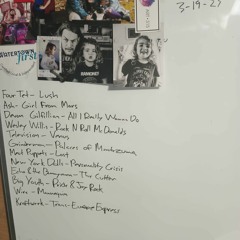 3-19-23
WATERTOWN
first
Four Tet - Lush
Ash - Girl From Mars
Devon Gilfillian - All I Really Wanna Do
Wesley Willis - Rock N Roll McDonalds
Television - Venus
Geordie Greep
Palaces of Montezuma
Meat Puppets - Lost
New York Dolls - Personality Crisis
Echo & the Bunnymen - The Cutter
Big Youth - Pride & Joy Rock
Wire - Mannequin
Kraftwerk - Trans-Europe Express